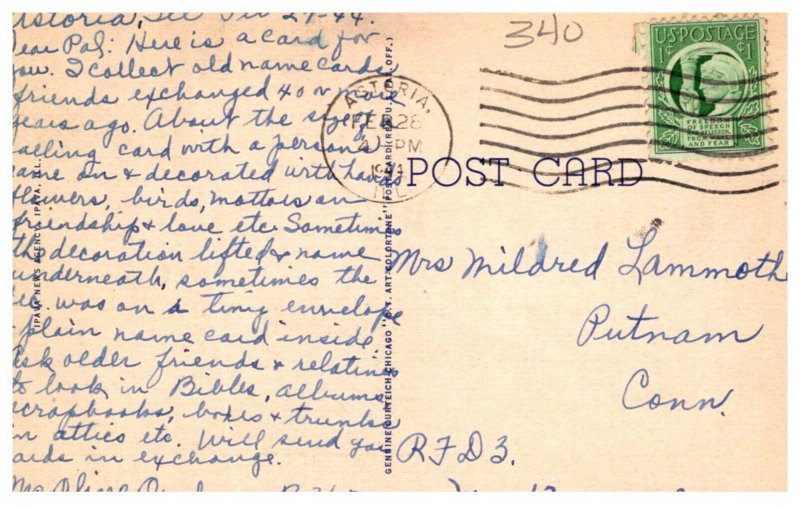 Astoria, Ill Feb 27-44.
Dear Pal: Here is a card for
you. I collect old name cards
friends exchanged 40 or more
years ago. About the size of
calling card with a persons
name on & decorated with hands
flowers, birds, mottoes on
friendship & love etc. Sometimes
the decoration lifted & name
underneath, sometimes the
was on a tiny envelope
plain name card inside.
Ask older friends & relatives
to look in Bibles, albums
scrapbooks, boxes & trunks
in attics etc. Will send you
cards in exchange.
IPAVA NEWS AGENCY, IPAVA, ILL.
GENUINE CURTEICH-CHICAGO "C. T. ART-COLORTONE" POST CARD (REG. U. S. PAT. OFF.)
340
ASTORIA,
FEB 28
4 PM
1944
ILL.
U.S. POSTAGE
1¢ ¢1
FREEDOM
OF SPEECH
AND RELIGION,
FROM WANT
AND FEAR
POST CARD
Mrs Mildred Lammoth
Putnam
Conn.
RFD 3.